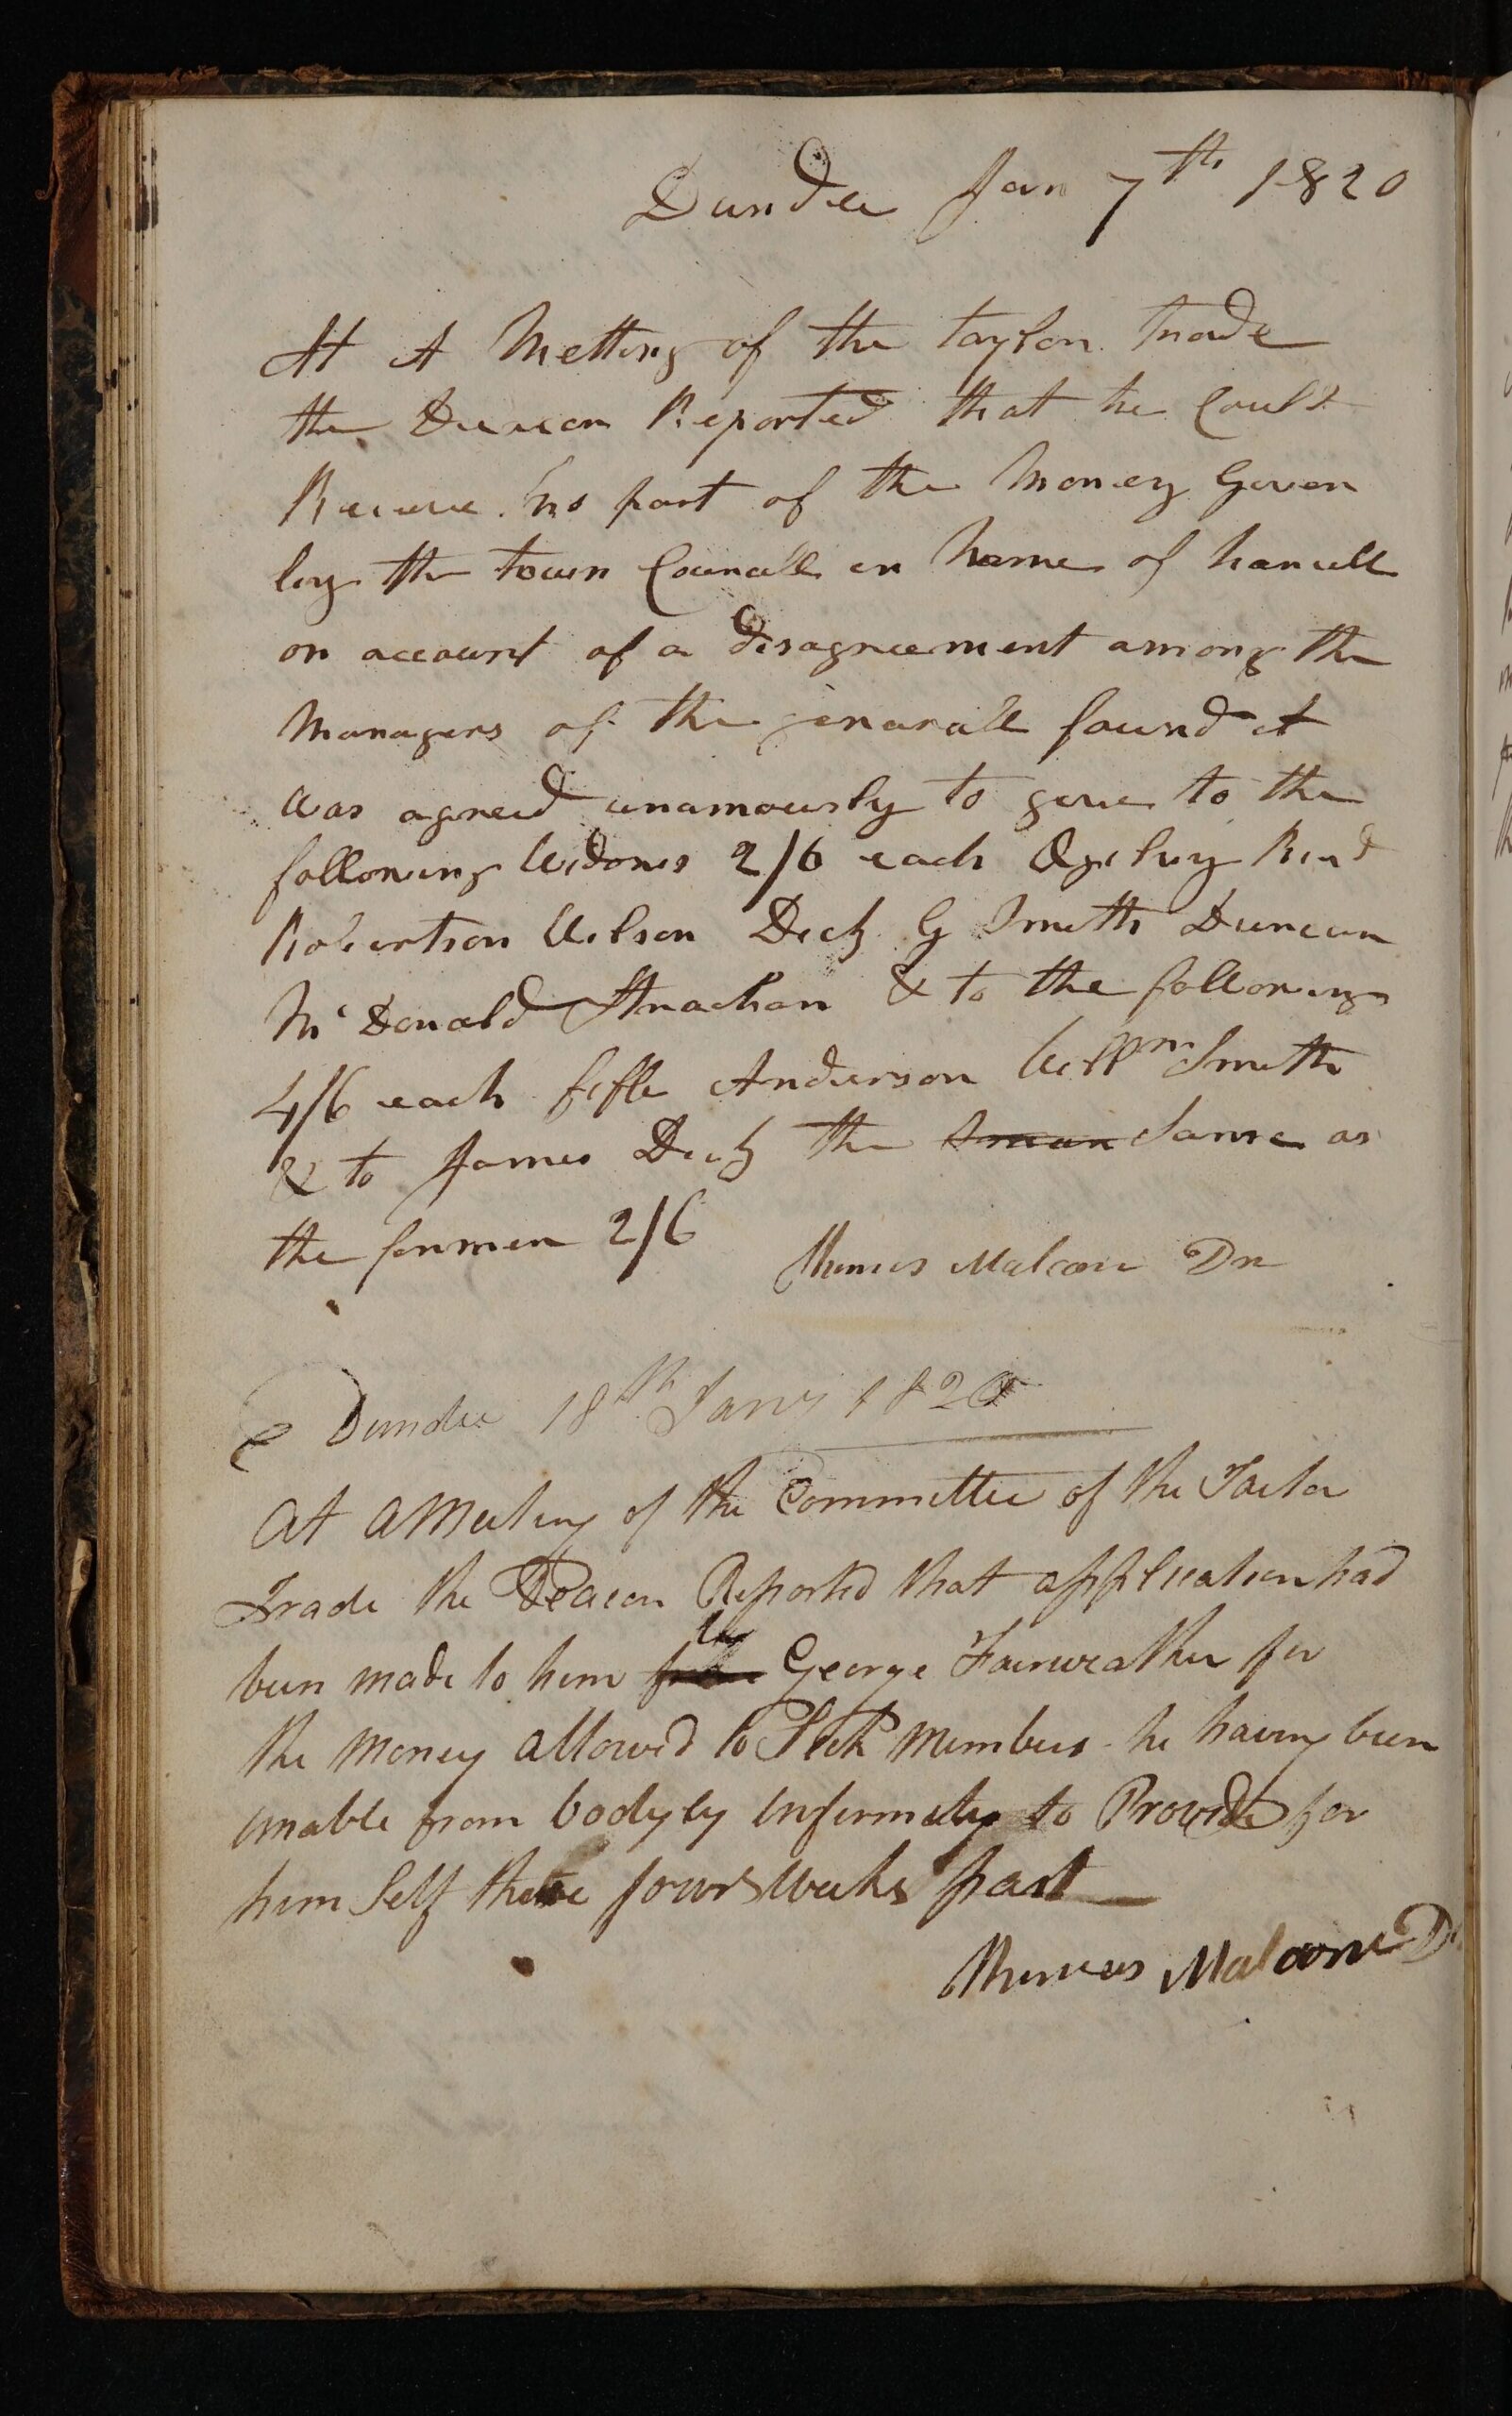 Dundee Jan 7th 1820
At A Metting of the taylor trade
the Deucon Reported that he Could
Receive no part of the Money Given
by the town Councill in Name of hansell
on account of a disagreement among the
Managers of the genarall found it
was agreed unamously to give to the
following Widows 2/6 each Ogilvy Reid
Robertson Wilson Dick G Smith Duncan
McDonald Strachan & to the following
4/6 each fife Anderson Willm Smith
& to James Dick the Same as
the former 2/6
Thomas Malcom Dn
Dundee 18th Jany 1820
At a Meeting of the Committee of the Tailor
Trade the Deacon Reported that application had
been made to him by George Fairweather for
the money allowed to Sick members he having been
unable from bodyly infirmity to Provide for
him Self these four Weeks past
Thomas Malcom Dn